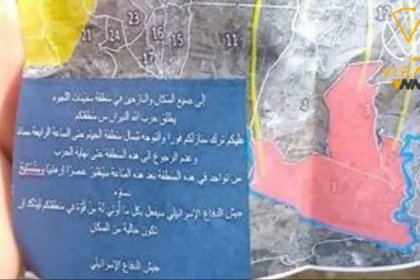 21
24
23
16
17
15
11
12
1
إلى جميع السكان والنازحين في منطقة مخيمات اللجوء
يطلق حزب الله النيران من منطقتكم
عليكم ترك منازلكم فورا والتوجه شمال منطقة الخيم حتى الساعة الرابعة مساء
وعدم الرجوع الى هذه المنطقة حتى نهاية الحرب
من تواجد في هذه المنطقة بعد هذه الساعة سيعتبر عنصرا إرهابيا
جيش الدفاع الإسرائيلي سيعمل بكل ما أوتي له من قوة في منطقتكم
تكون خالية من السكان
جيش الدفاع الإسرائيلي
VIRAL